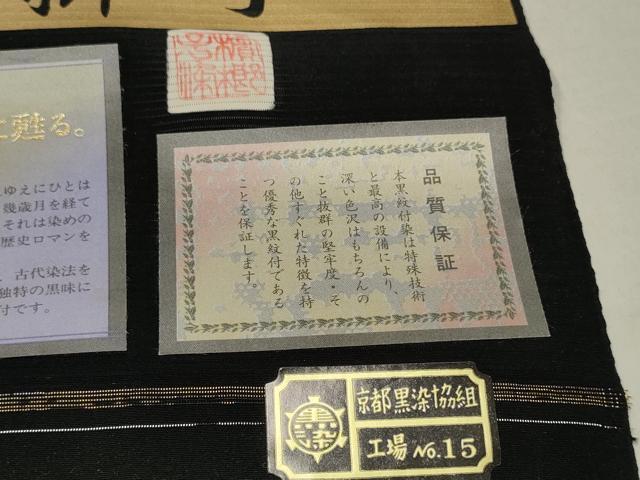 に甦る。
ゆえにひとは
幾歳月を経て
それは染めの
歴史ロマンを
古代染法を
独特の黒味に
付です。
品質保証
本黒紋付染は特殊技術
と最高の設備により、
深い色沢はもちろんの
こと抜群の堅牢度・そ
の他すぐれた特徴を持
つ優秀な黒紋付である
ことを保証します。
黒染
京都黒染協組
工場 No.15